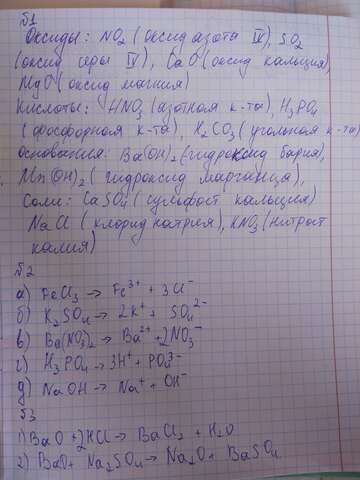 №1
Оксиды: NO₂ (оксид азота IV), SO₂
(оксид серы IV), CaO (оксид кальция),
MgO (оксид магния)
Кислоты: HNO₃ (азотная к-та), H₃PO₄
(фосфорная к-та), H₂CO₃ (угольная к-та)
основания: Ba(OH)₂ (гидроксид бария),
Mn(OH)₂ (гидроксид марганца),
Соли: CaSO₄ (сульфат кальция)
NaCl (хлорид натрия), KNO₃ (нитрат
калия)
№2
а) FeCl₃ → Fe³⁺ + 3Cl⁻
б) K₂SO₄ → 2K⁺ + SO₄²⁻
в) Ba(NO₃)₂ → Ba²⁺ + 2NO₃⁻
г) H₃PO₄ → 3H⁺ + PO₄³⁻
д) NaOH → Na⁺ + OH⁻
№3
1) BaO + 2HCl → BaCl₂ + H₂O
2) BaO + Na₂SO₄ → Na₂O + BaSO₄